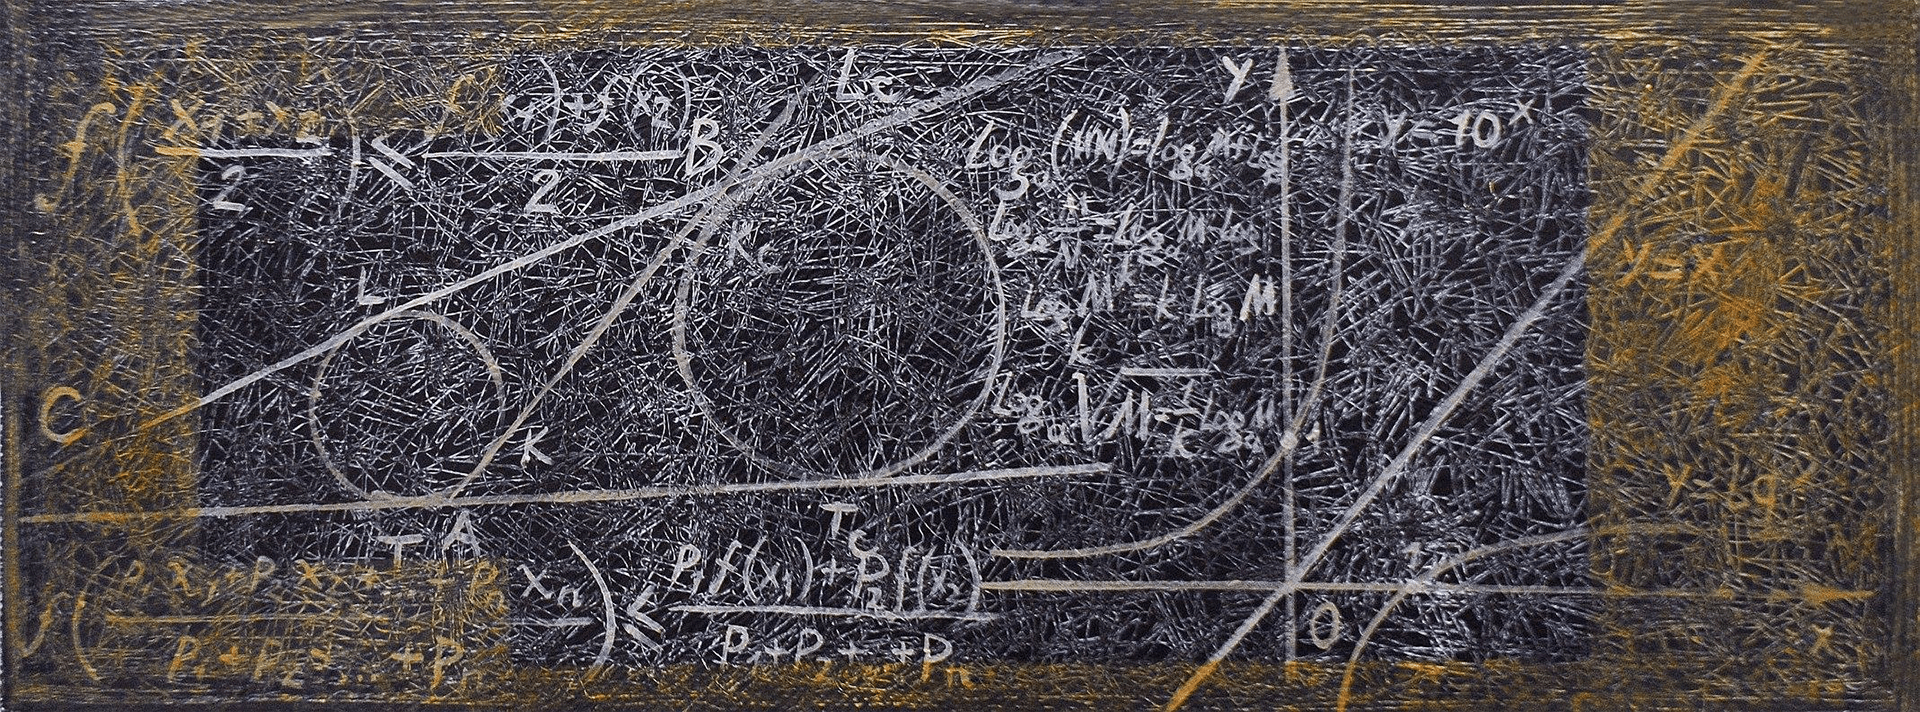 f(x₁+x₂/2) ≤ f(x₁)+f(x₂)/2
B
Lc
L
Kc
C
K
T
A
Tc
Logₐ(MN)=logₐM+Logₐ
Logₐ M/N=Logₐ M-Log
Log Mᵏ=k Logₐ M
Logₐ ᵏ√M=1/k Logₐ M
Y
y=10ˣ
y=x
y=Lg
1
1
0
x
f(p₁x₁+p₂x₂+ +pₙxₙ/p₁+p₂+...+pₙ) ≤ p₁f(x₁)+p₂f(x₂)/p₁+p₂+ +pₙ